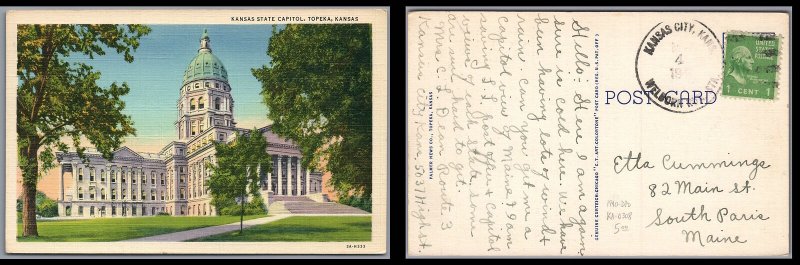 KANSAS STATE CAPITOL, TOPEKA, KANSAS
2A-H333
Hello: Here I am again
Sure is cold here. We have
been having lots of wind &
rain. Can you get me a
Capitol view of Maine? I am
saving S.S. post office & Capitol
views of each state. Some
are sure hard to get.
Mrs. C. L. Dern Route 3
Kansas City, Kans. 5037 High st.
PALMER NEWS CO., TOPEKA, KANSAS
GENUINE CURTEICH-CHICAGO "C.T. ART-COLORTONE" POST CARD (REG. U.S. PAT. OFF.)
POST CARD
KANSAS CITY, KANS.
4
19
WELBORN STA.
UNITED STATES
POSTAGE
1 CENT 1
Etta Cummings
82 Main St.
South Paris
Maine
KA-0308
5.00